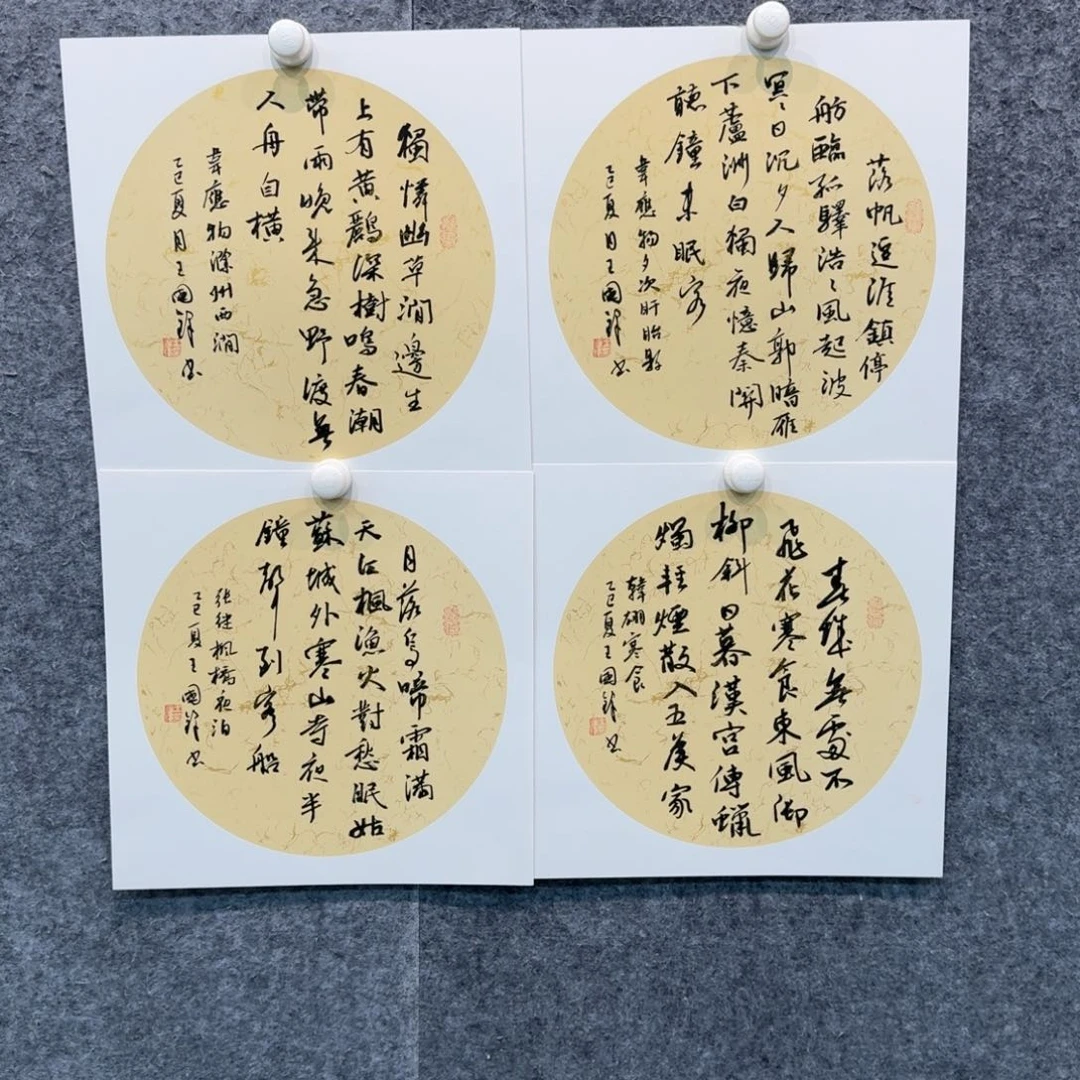 落帆逗淮鎮停
舫臨孤驛浩〻風起波
冥〻日沉夕人歸山郭暗雁
下蘆洲白獨夜憶秦関
聽鐘未眠客
韋應物夕次盱眙縣
乙巳夏月王國書
獨憐幽草澗邊生
上有黃鸝深樹鳴春潮
帶雨晚來急野渡無
人舟自橫
韋應物滁州西澗
乙巳夏月王國書
春城無處不
飛花寒食東風御
柳斜日暮漢宮傳蠟
燭輕煙散入五侯家
韓翃寒食
乙巳夏王國書
月落烏啼霜滿
天江楓漁火對愁眠姑
蘇城外寒山寺夜半
鐘聲到客船
張继楓橋夜泊
乙巳夏王國書